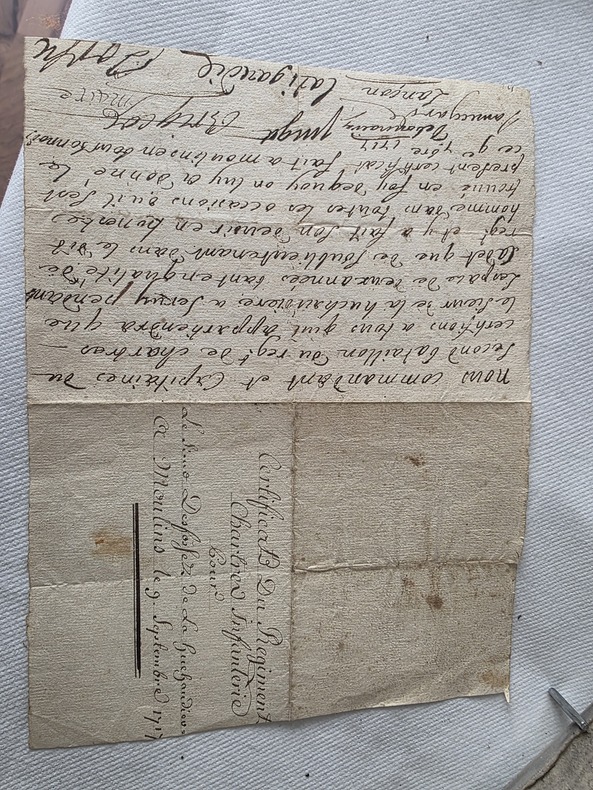 nous commandant et Capitaines du
second bataillon du regt de chartres
certifions a tous quil appartiendra que
le sieur de la huchaudiere a servy pendant
lespace de deux année tant en qualité de
cadet que de soublieutenant dans le dit
regt et y a fait son devoir en honeste
homme dans toutes les occasions ou il sest
trouué en foy dequoy on luy a donné le
present certificat fait a moulins en bourbonnois
ce 9e 7bre 1717
Lançon
latigaudie
maire
Certificat Du Regiment
Chartres Infanterie
Pour
Le Sieur Desfossez de La huchaudiere
A Moulins le 9 Septembre 1717